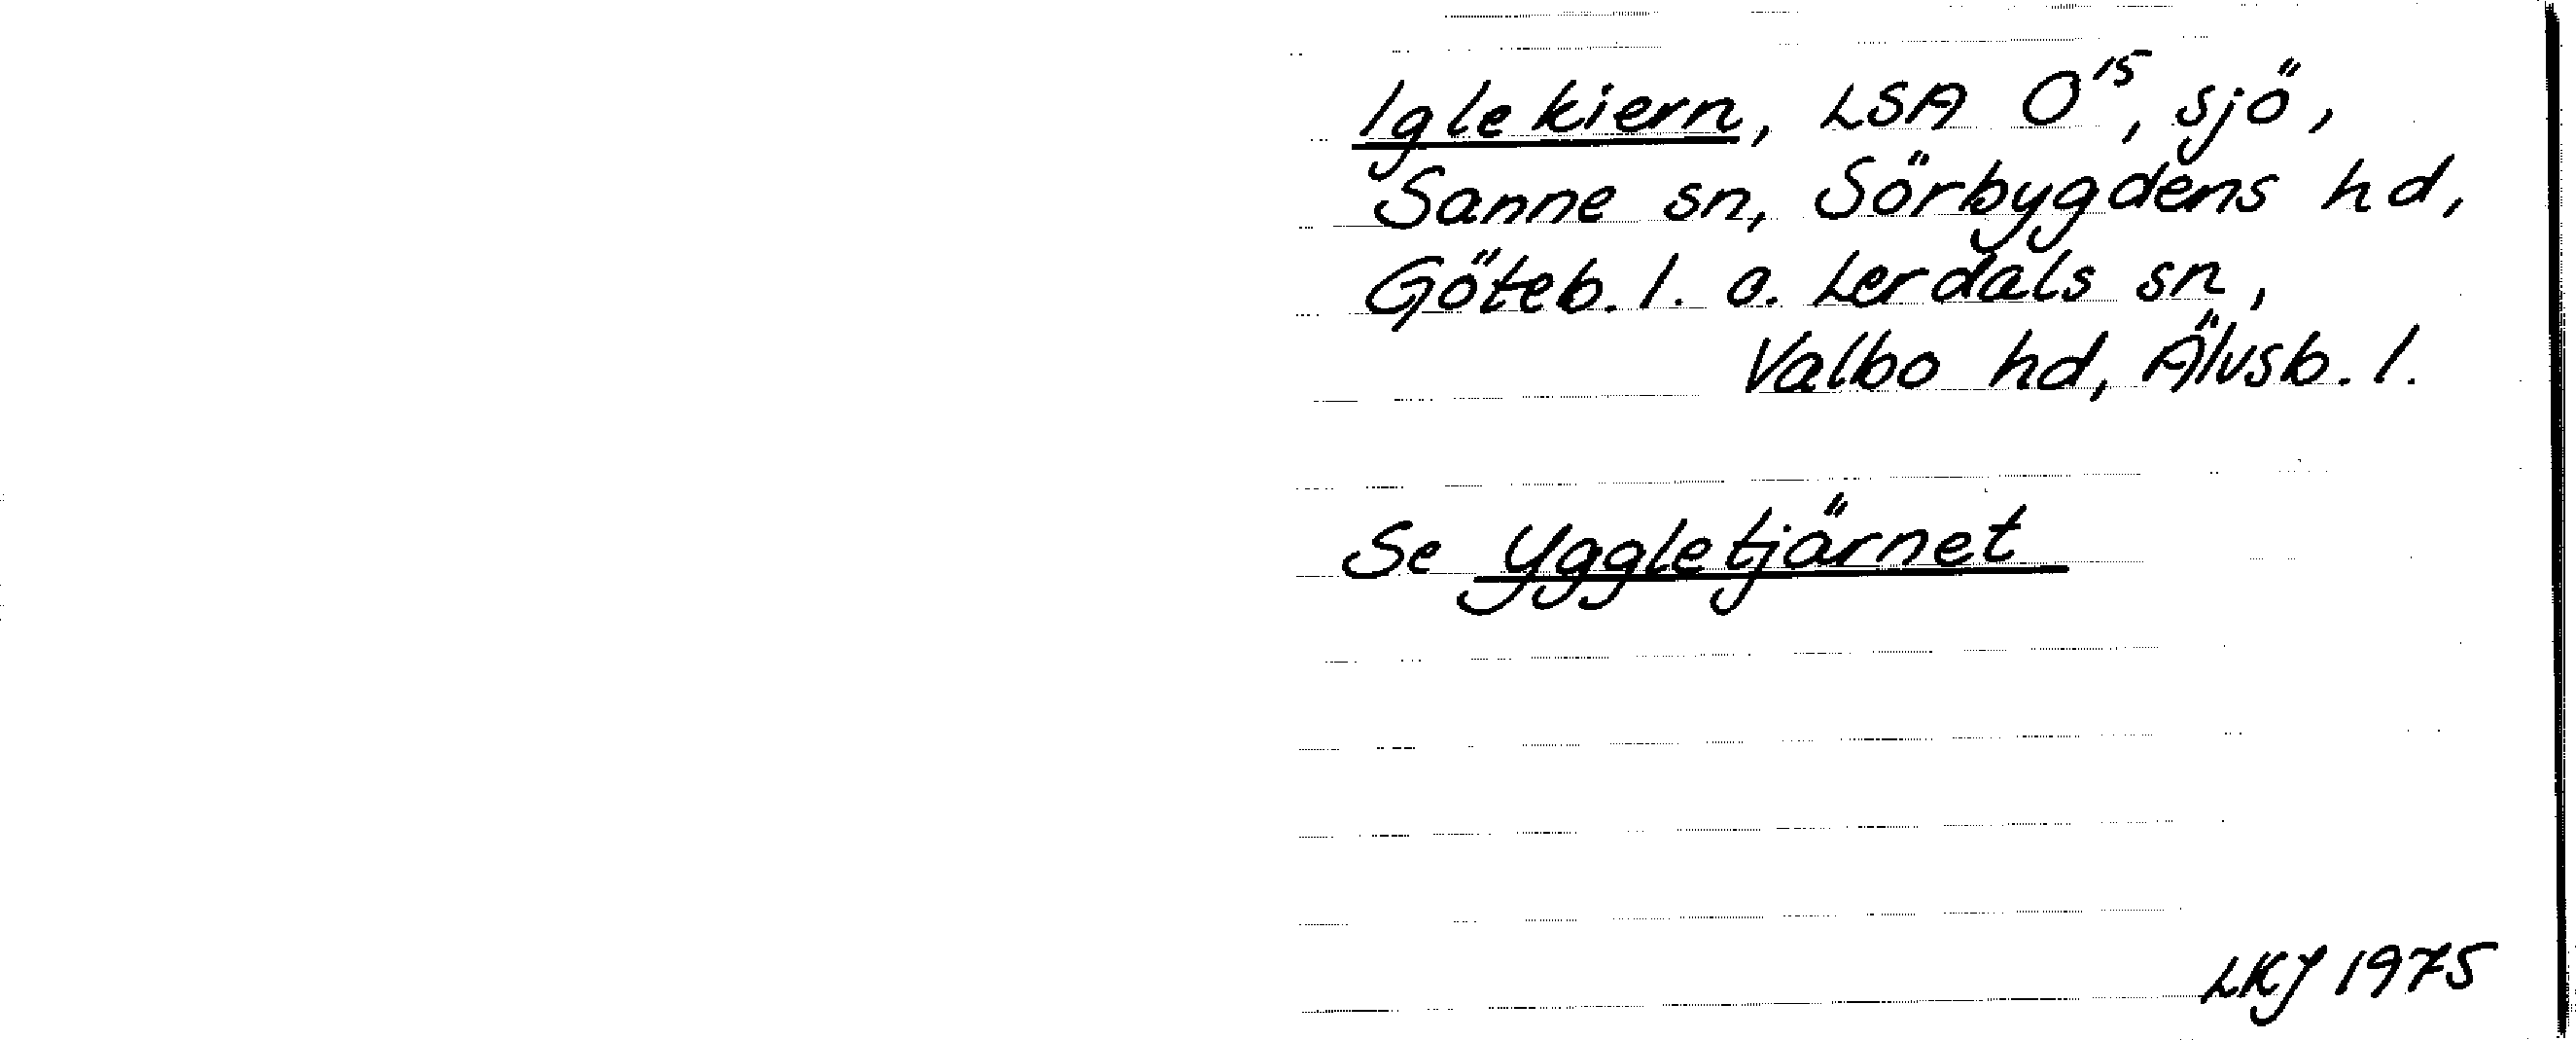 Iglekiern, LSA O¹⁵, sjö,
Sanne sn, Sörbygdens hd,
Göteb. l. o. Lerdals sn,
Valbo hd, Älvsb. l.
Se Yggletjärnet
LKJ 1975